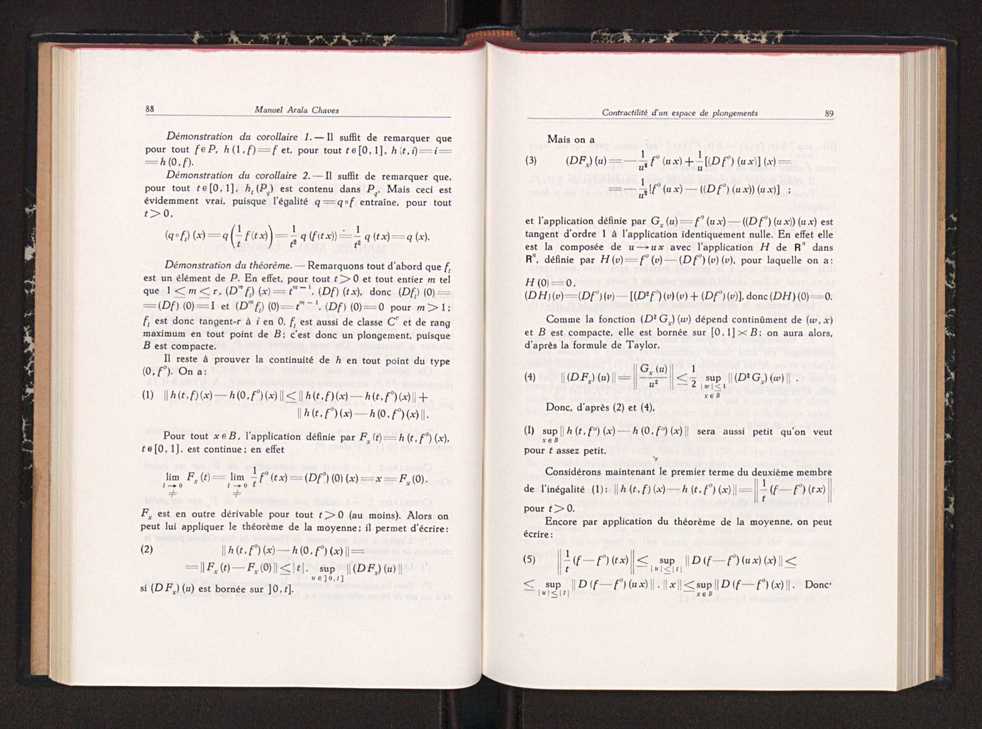 88 Manuel Arala Chaves
Démonstration du corollaire 1. — Il suffit de remarquer que
pour tout f ∈ P, h (1, f) = f et, pour tout t ∈ [0, 1], h (t, i) = i =
= h (0, f).
Démonstration du corollaire 2. — Il suffit de remarquer que,
pour tout t ∈ [0, 1], h_t (P_q) est contenu dans P_q. Mais ceci est
évidemment vrai, puisque l'égalité q = q∘f entraîne, pour tout
t > 0,
(q∘f_t) (x) = q (1/t f (tx)) = 1/t² q (f (tx)) = 1/t² q (tx) = q (x).
Démonstration du théorème. — Remarquons tout d'abord que f_t
est un élément de P. En effet, pour tout t > 0 et tout entier m tel
que 1 ≤ m ≤ r, (D^m f_t) (x) = t^{m-1}. (Df) (tx), donc (Df_t) (0) =
= (Df) (0) = I et (D^m f_t) (0) = t^{m-1}. (Df) (0) = 0 pour m > 1;
f_t est donc tangent-r à i en 0, f_t est aussi de classe C^r et de rang
maximum en tout point de B; c'est donc un plongement, puisque
B est compacte.
Il reste à prouver la continuité de h en tout point du type
(0, f°). On a:
(1) ‖ h (t, f) (x) — h (0, f°) (x) ‖ ≤ ‖ h (t, f) (x) — h (t, f°) (x) ‖ +
‖ h (t, f°) (x) — h (0, f°) (x) ‖.
Pour tout x ∈ B, l'application définie par F_x (t) = h (t, f°) (x),
t ∈ [0, 1], est continue; en effet
lim_{t → 0, ≠} F_x (t) = lim_{t → 0, ≠} 1/t f° (tx) = (Df°) (0) (x) = x = F_x (0).
F_x est en outre dérivable pour tout t > 0 (au moins). Alors on
peut lui appliquer le théorème de la moyenne; il permet d'écrire:
(2) ‖ h (t, f°) (x) — h (0, f°) (x) ‖ =
= ‖ F_x (t) — F_x (0) ‖ ≤ | t |. sup_{u ∈ ]0, t]} ‖ (DF_x) (u) ‖
si (DF_x) (u) est bornée sur ]0, t].
Contractilité d'un espace de plongements 89
Mais on a
(3) (DF_x) (u) = — 1/u² f° (ux) + 1/u [(Df°) (ux)] (x) =
= — 1/u² [f° (ux) — ((Df°) (ux)) (ux)] ;
et l'application définie par G_x (u) = f° (ux) — ((Df°) (ux)) (ux) est
tangent d'ordre 1 à l'application identiquement nulle. En effet elle
est la composée de u → ux avec l'application H de R^n dans
R^n, définie par H (v) = f° (v) — (Df°) (v) (v), pour laquelle on a:
H (0) = 0,
(DH) (v) = (Df°) (v) — [(D²f°) (v) (v) + (Df°) (v)], donc (DH) (0) = 0.
Comme la fonction (D² G_x) (w) dépend continûment de (w, x)
et B est compacte, elle est bornée sur [0, 1] × B; on aura alors,
d'après la formule de Taylor,
(4) ‖ (DF_x) (u) ‖ = ‖ G_x (u) / u² ‖ ≤ 1/2 sup_{| w | ≤ 1, x ∈ B} ‖ (D² G_x) (w) ‖ .
Donc, d'après (2) et (4),
(I) sup_{x ∈ B} ‖ h (t, f°) (x) — h (0, f°) (x) ‖ sera aussi petit qu'on veut
pour t assez petit.
Considérons maintenant le premier terme du deuxième membre
de l'inégalité (1): ‖ h (t, f) (x) — h (t, f°) (x) ‖ = ‖ 1/t (f — f°) (tx) ‖
pour t > 0.
Encore par application du théorème de la moyenne, on peut
écrire:
(5) ‖ 1/t (f — f°) (tx) ‖ ≤ sup_{| u | ≤ | t |} ‖ D (f — f°) (ux) (x) ‖ ≤
≤ sup_{| u | ≤ | t |} ‖ D (f — f°) (ux) ‖ . ‖ x ‖ ≤ sup_{x ∈ B} ‖ D (f — f°) (x) ‖ . Donc